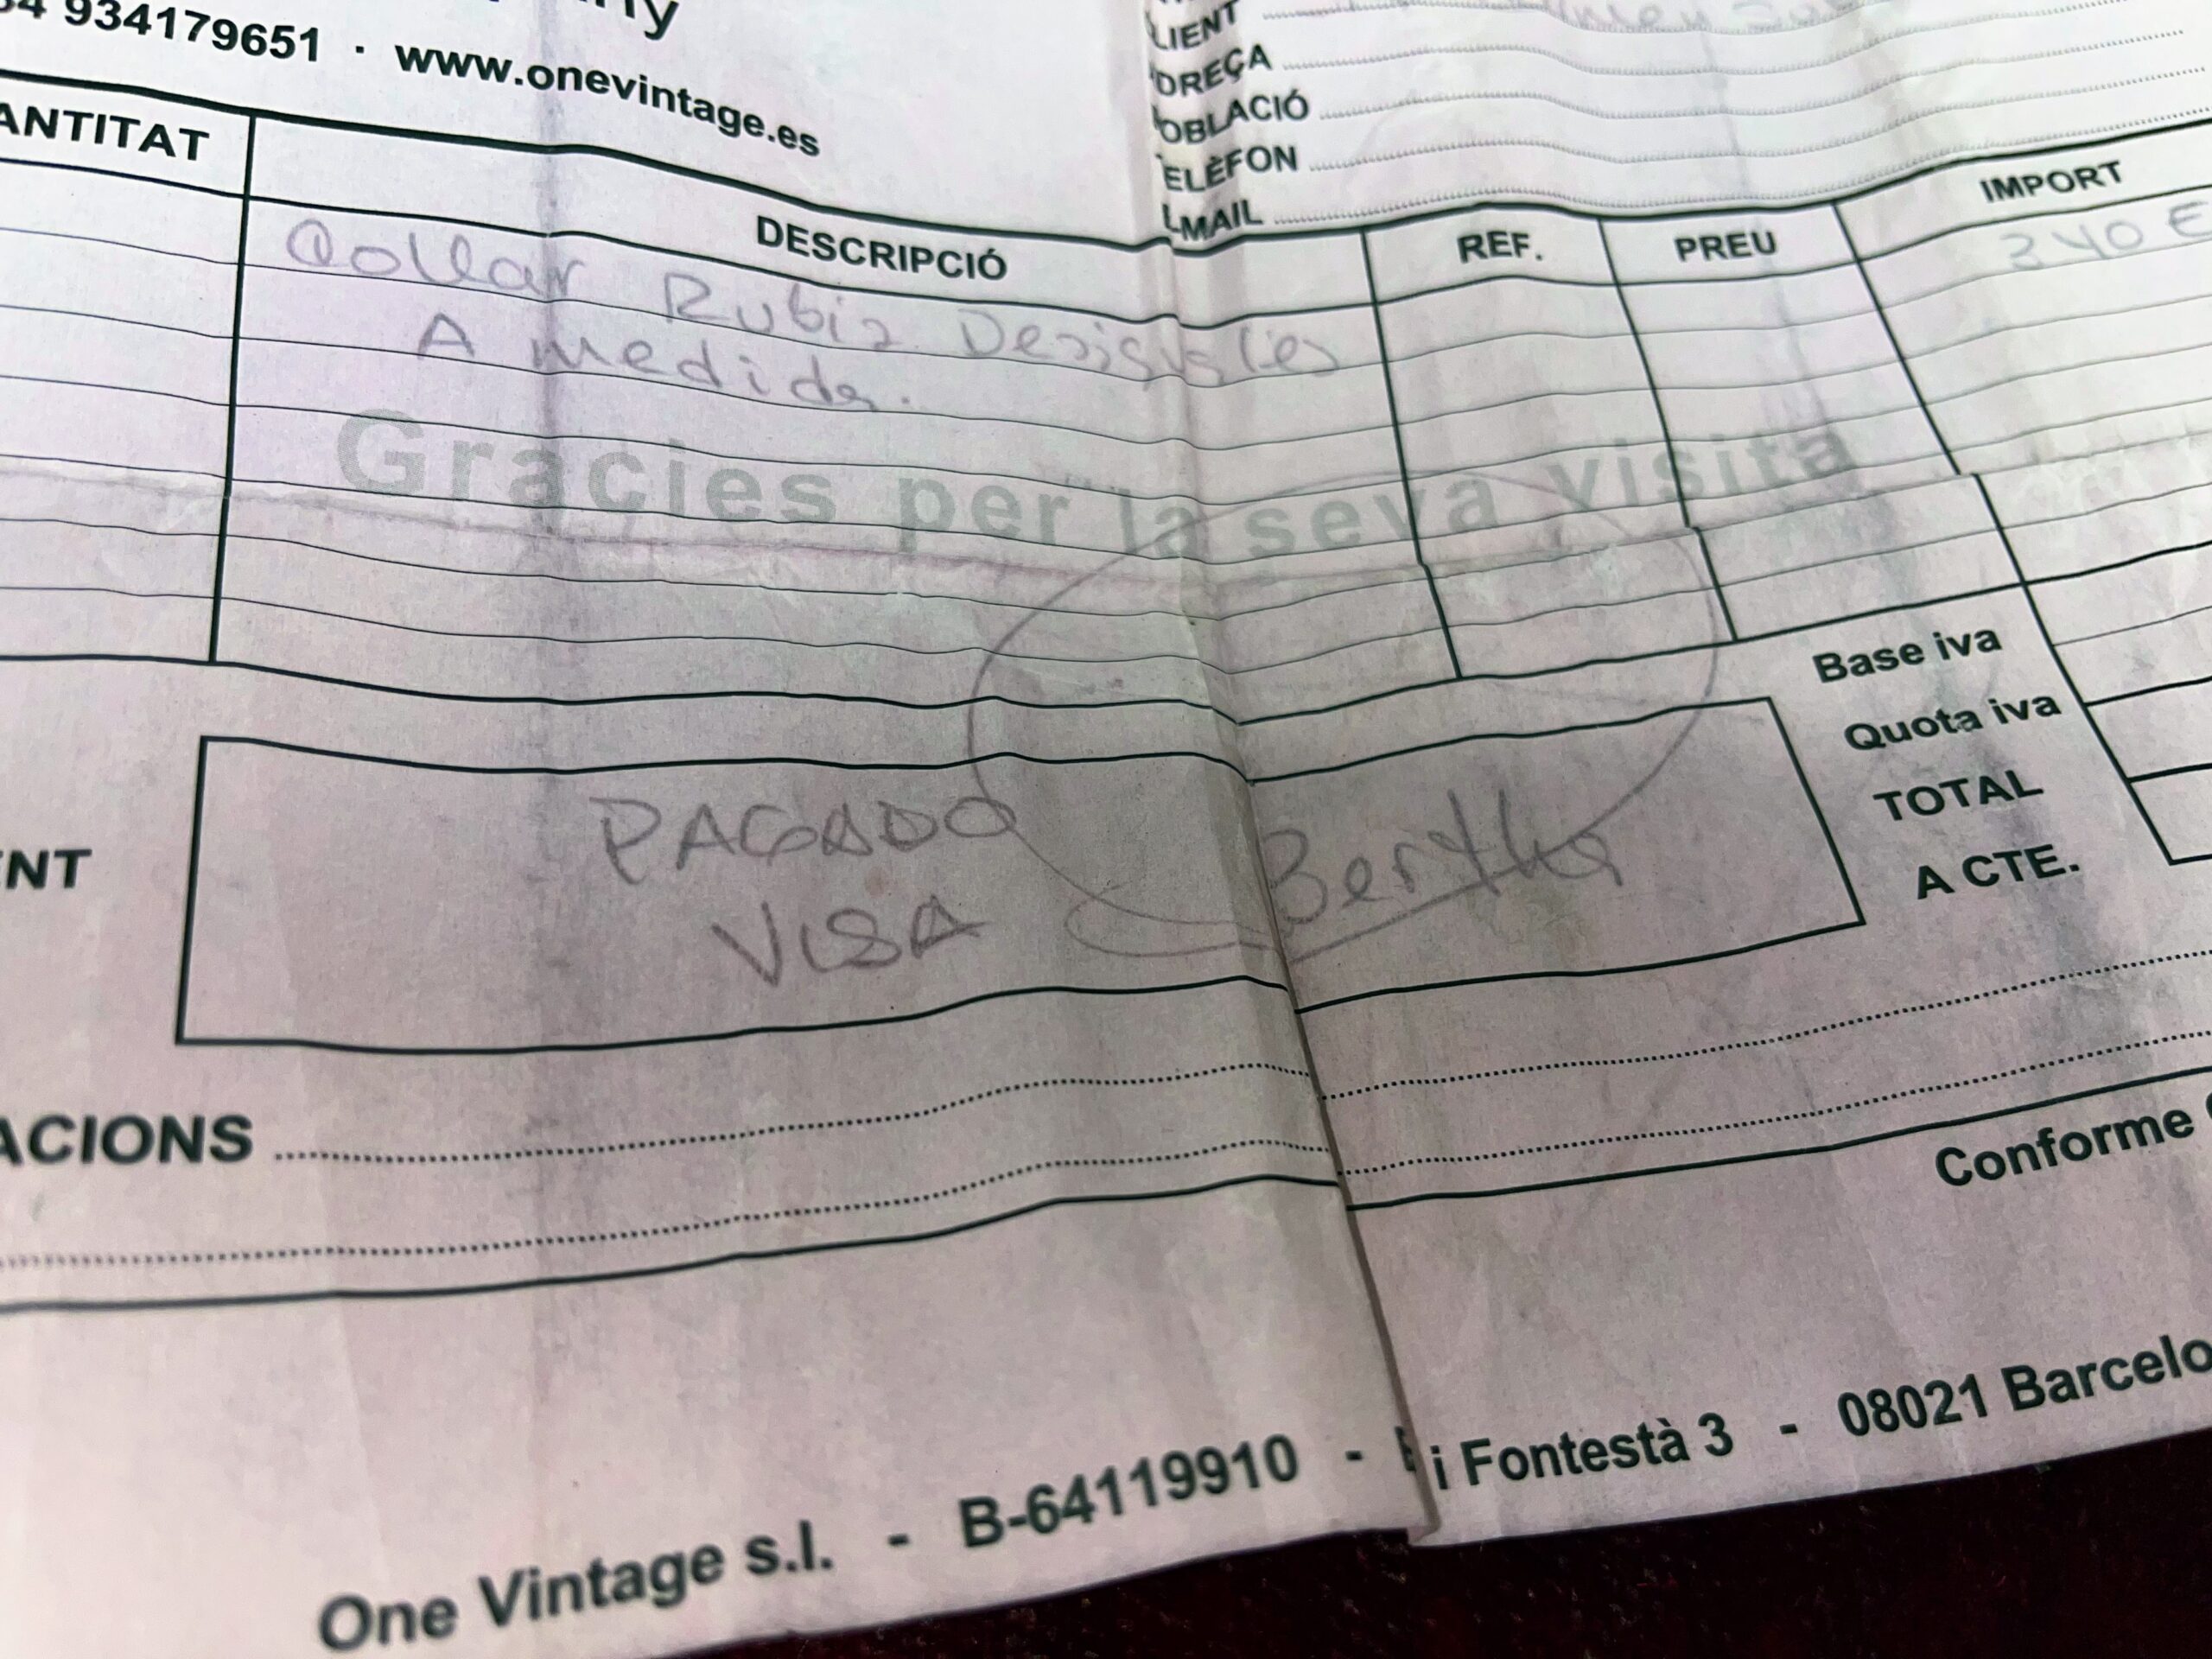 934179651 · www.onevintage.es
LIENT
DREÇA
OBLACIÓ
ELÈFON
MAIL
ANTITAT DESCRIPCIÓ REF. PREU IMPORT
Collar Rubis 340 €
A medida.
Gracies per la seva visita
Base iva
Quota iva
TOTAL
A CTE.
ENT PAGADO
VISA
Bertha
ACIONS
Conforme
One Vintage s.l. - B-64119910 - i Fontestà 3 - 08021 Barcelo